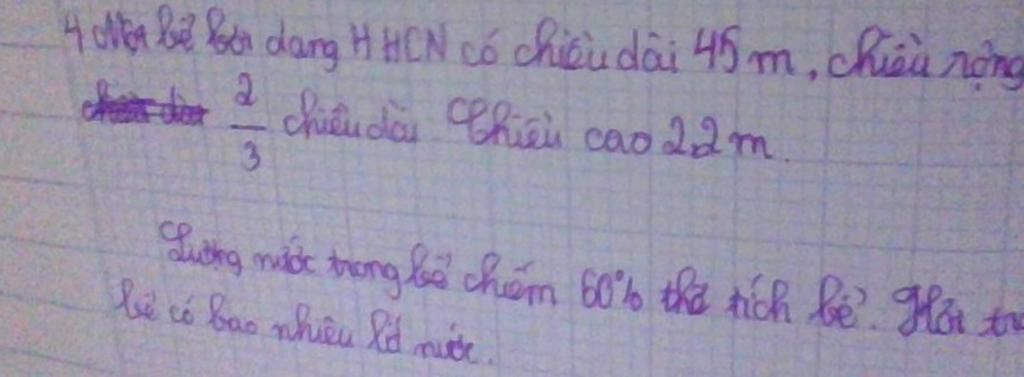 4 Một bể bơi dạng HHCN có chiều dài 45 m, chiều rộng
2/3 chiều dài Chiều cao 2,2 m.
Lượng nước trong bể chiếm 60% thể tích bể. Hỏi
bể có bao nhiêu lít nước.